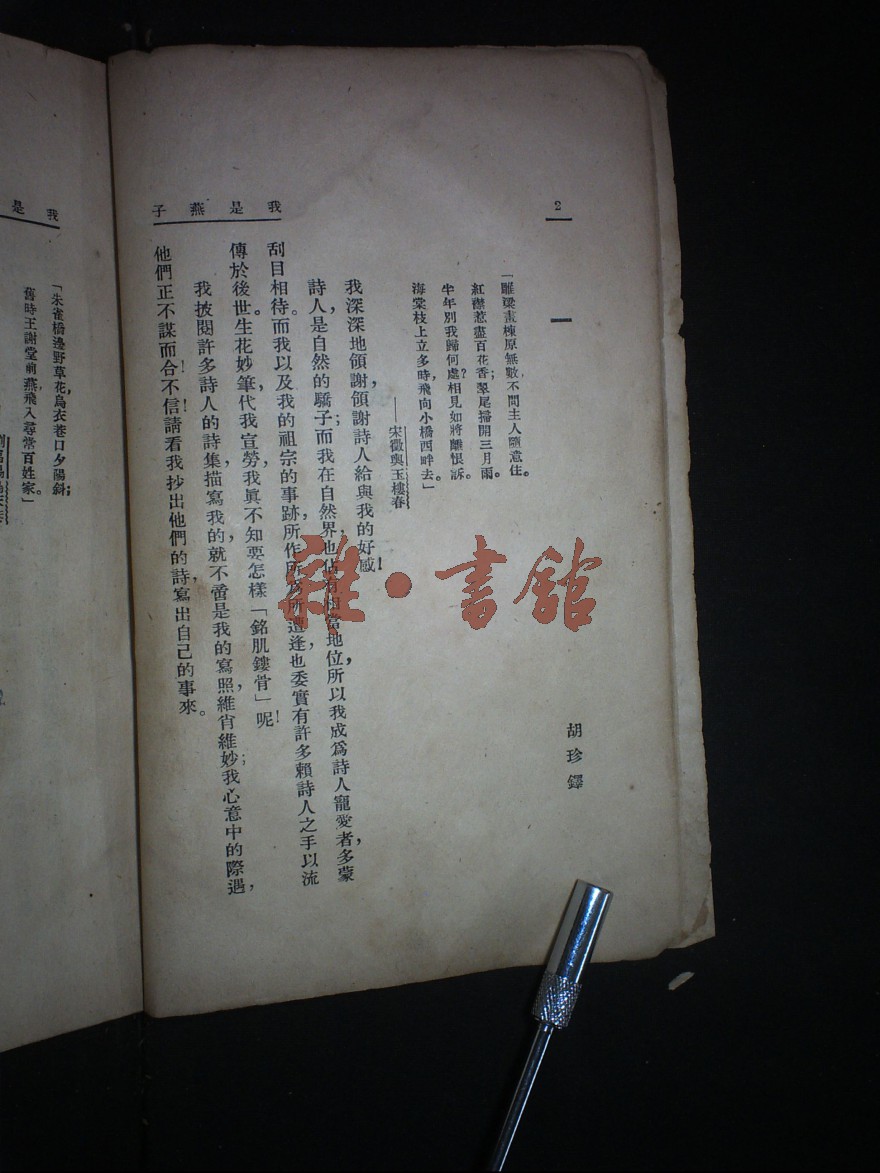 2
一
胡珍鐸
「雕梁畫棟原無數,不問主人隨意住。
紅襟惹盡百花香;翠尾掃開三月雨。
半年別我歸何處?相見如將離恨訴。
海棠枝上立多時,飛向小橋西畔去。」
——宋徵輿玉樓春
我深深地領謝,領謝詩人給與我的好感!
詩人是自然的驕子;而我在自然界也佔有相當地位,所以我成為詩人寵愛者多,蒙
刮目相待。而我以及我的祖宗的事跡,所作所為所遭逢,也委實有許多賴詩人之手以流
傳於後世。生花妙筆,代我宣勞,我真不知要怎樣「銘肌鏤骨」呢!
我披閱許多詩人的詩集,描寫我的,就不啻是我的寫照,維肖維妙;我心意中的際遇,
他們正不謀而合!不信!請看我抄出他們的詩,寫出自己的事來。
我是燕子
我是
「朱雀橋邊野草花,烏衣巷口夕陽斜;
舊時王謝堂前燕,飛入尋常百姓家。」
雜·書館